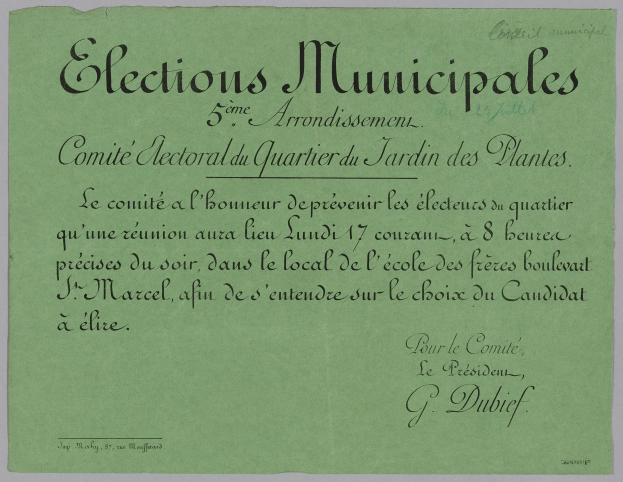 Conseil municipal
Elections Municipales
5ème Arrondissement.
du 23 Juillet
Comité Electoral du Quartier du Jardin des Plantes.
Le comité a l'honneur de prévenir les électeurs du quartier
qu'une réunion aura lieu Lundi 17 courant, à 8 heures
précises du soir, dans le local de l'école des frères boulevart
St. Marcel, afin de s'entendre sur le choix du Candidat
à élire.
Pour le Comité,
Le Président,
G. Dubief.
Imp. Mahy, rue Mouffetard